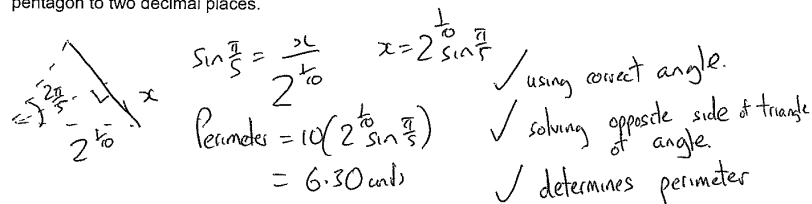 pentagon to two decimal places.
sin π/5 = x / 2^(1/10)
x = 2^(1/10) sin π/5
2π/5
x
2^(1/10)
Perimeter = 10(2^(1/10) sin π/5)
= 6.30 units
✓ using correct angle.
✓ solving opposite side of triangle
of angle.
✓ determines perimeter